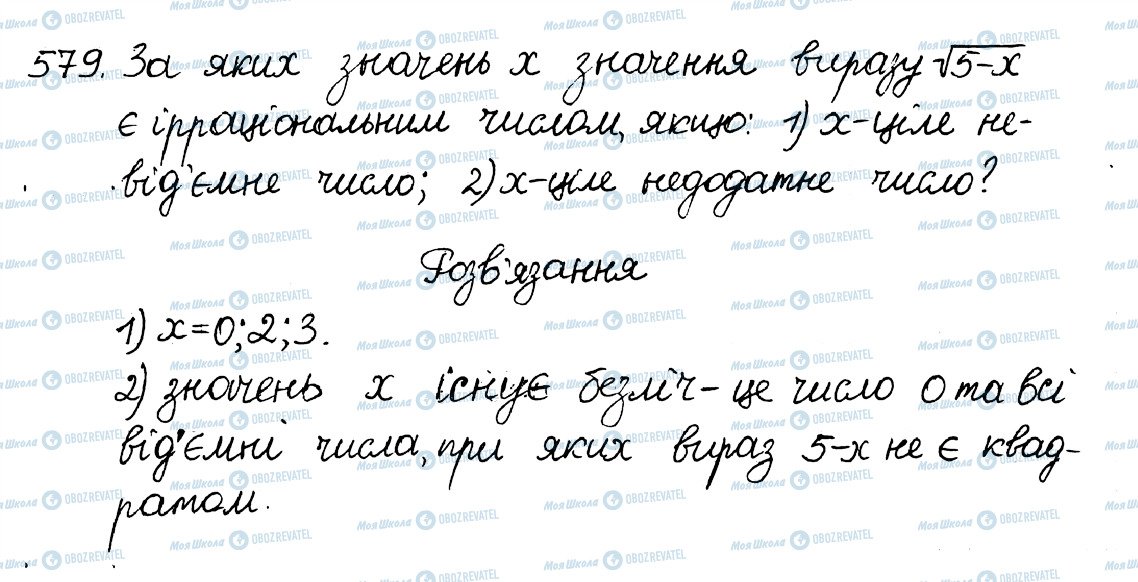 579. За яких значень x значення виразу √5-x
є ірраціональним числом, якщо: 1) x-ціле не-
від'ємне число; 2) x-ціле недодатне число?
Розв'язання
1) x=0; 2; 3.
2) значень x існує безліч - це число 0 та всі
від'ємні числа, при яких вираз 5-x не є квад-
ратом.